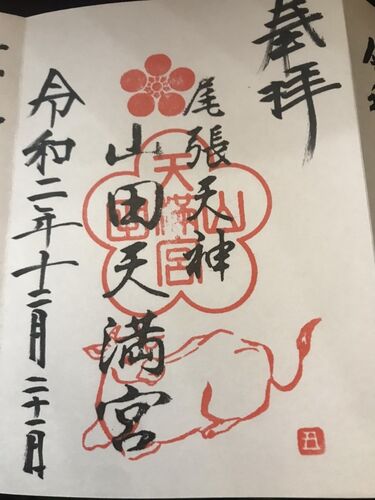 奉拝
尾張天神
山田天満宮
令和二年十二月二十一日
山田天満宮
丑